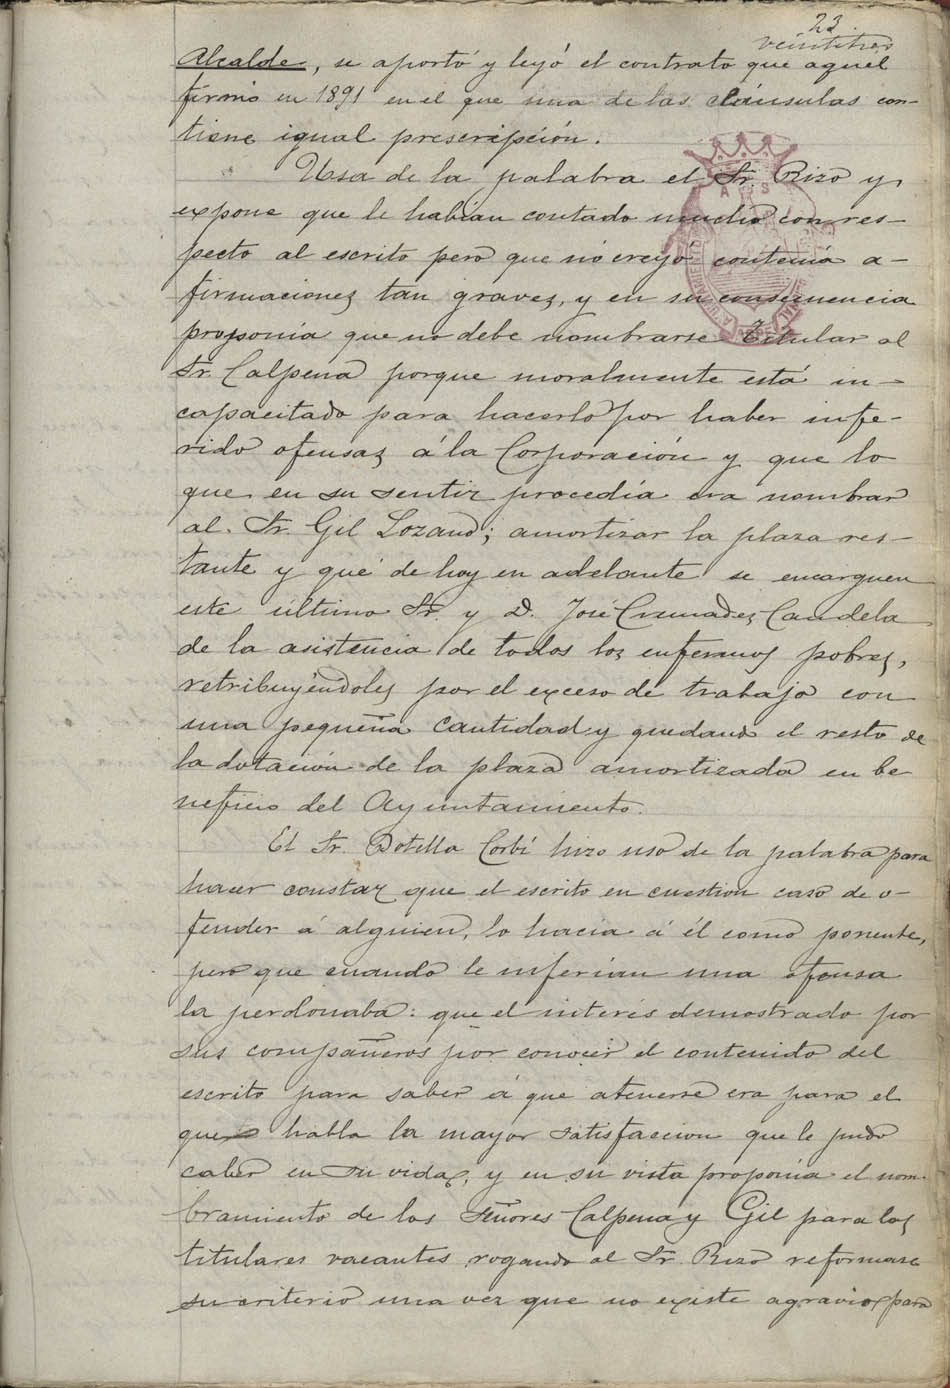 23
veintitres
Alcalde, se aportó y leyó el contrato que aquel
firmó en 1891 en el que una de las cláusulas con-
tiene igual prescripción.
Usa de la palabra el Sr. Rizo y
expone que le habían contado mucho con res-
pecto al escrito pero que nó creyó contenía a-
firmaciones tan graves, y en su consecuencia
proponía que no debe nombrarse Titular al
Sr. Calpena porque moralmente está in-
capacitado para hacerlo por haber infe-
rido ofensas á la Corporación y que lo
que en su sentir procedía era nombrar
al Sr. Gil Lozano; amortizar la plaza res-
tante y que de hoy en adelante se encarguen
este último Sr. y D. José Cremades Candela
de la asistencia de todos los enfermos pobres,
retribuyéndoles por el exceso de trabajo con
una pequeña cantidad y quedando el resto de
la dotación de la plaza amortizada en be
neficio del Ayuntamiento.
El Sr. Botella Corbí hizo uso de la palabra para
hacer constar que el escrito en cuestion caso de o-
fender á alguien, lo hacía á él como ponente,
pero que cuando le inferían una ofensa
la perdonaba: que el interés demostrado por
sus compañeros por conocer el contenido del
escrito para saber á que atenerse era para el
que habla la mayor satisfaccion que le pudo
caber en su vida, y en su vista proponía el nom-
bramiento de los Señores Calpena y Gil para las
titulares vacantes rogando al Sr. Rizo reformase
su criterio una vez que no existe agravio para